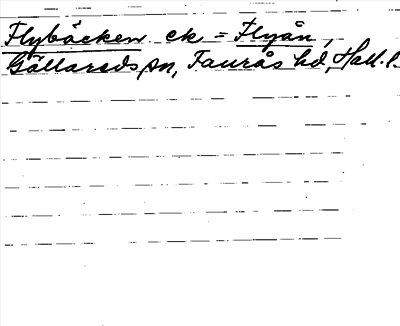 Flybäcken ek = Flyån,
Gällareds sn, Faurås hd, Hall. l.